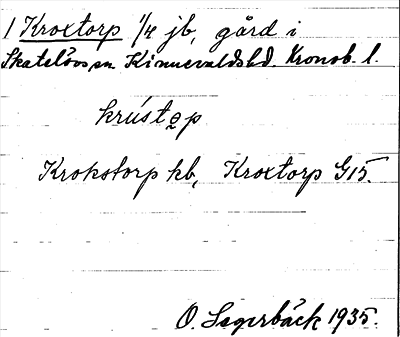 1 Kroxtorp 1/4 jb, gård i
Skatelövs sn Kinnevaldshd. Kronob. l.
krústo̤p
Krokstorp kb, Kroxtorp G15.
O. Sagerbäck 1935.